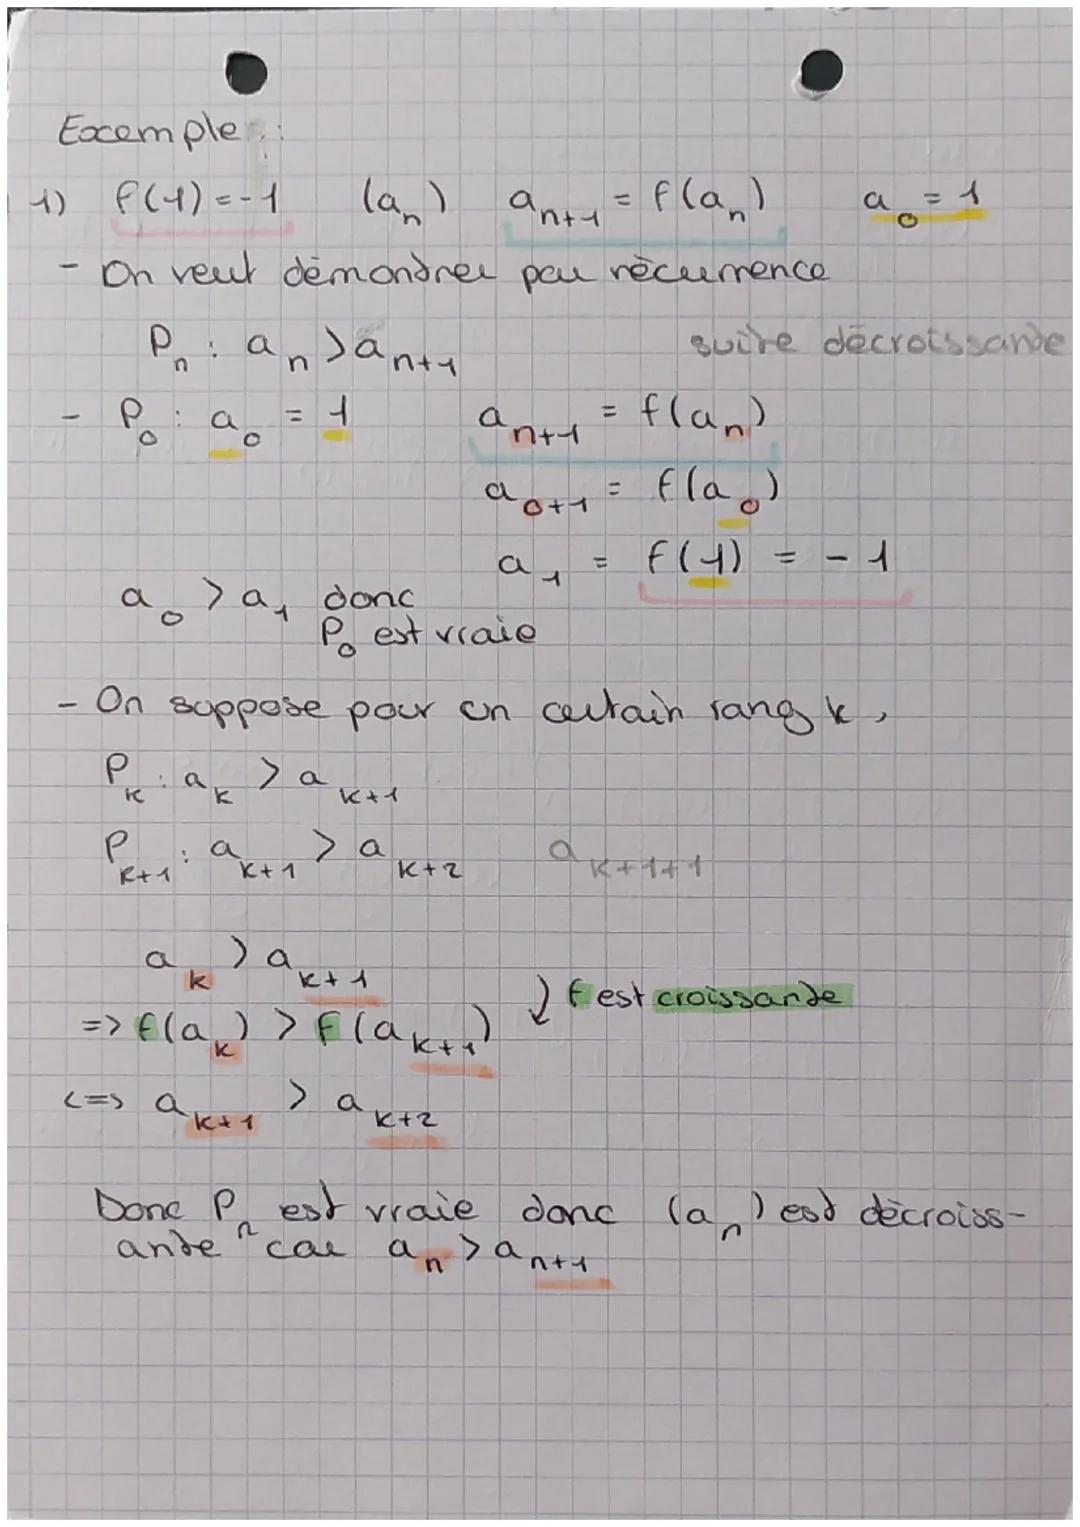 Exemple :
1) f(1) = -1 (aₙ) aₙ₊₁ = f(aₙ) a₀ = 1
- On veut démontrer par récurrence
Pₙ : aₙ > aₙ₊₁ suite décroissante
- P₀ : a₀ = 1 aₙ₊₁ = f(aₙ)
a₀₊₁ = f(a₀)
a₁ = f(1) = -1
a₀ > a₁ donc
P₀ est vraie
- On suppose pour un certain rang k,
Pₖ : aₖ > aₖ₊₁
Pₖ₊₁ : aₖ₊₁ > aₖ₊₂ aₖ₊₁₊₁
aₖ > aₖ₊₁
f est croissante
=> f(aₖ) > f(aₖ₊₁)
<=> aₖ₊₁ > aₖ₊₂
Donc Pₙ est vraie donc (aₙ) est décroiss-
ante car aₙ > aₙ₊₁